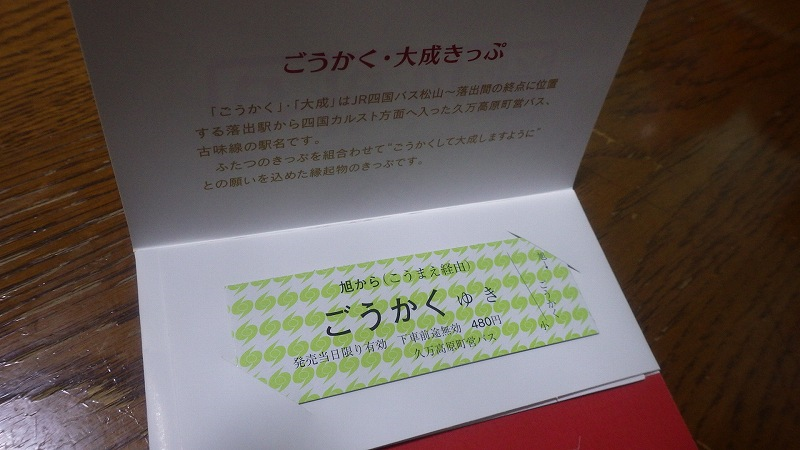 ごうかく・大成きっぷ
「ごうかく」・「大成」はJR四国バス松山～落出間の終点に位置
する落出駅から四国カルスト方面へ入った久万高原町営バス、
古味線の駅名です。
ふたつのきっぷを組合わせて"ごうかくして大成しますように"
との願いを込めた縁起物のきっぷです。
旭から(こうまえ経由)
ごうかく ゆき
発売当日限り有効 下車前途無効 480円
久万高原町営バス
ごうかく 小